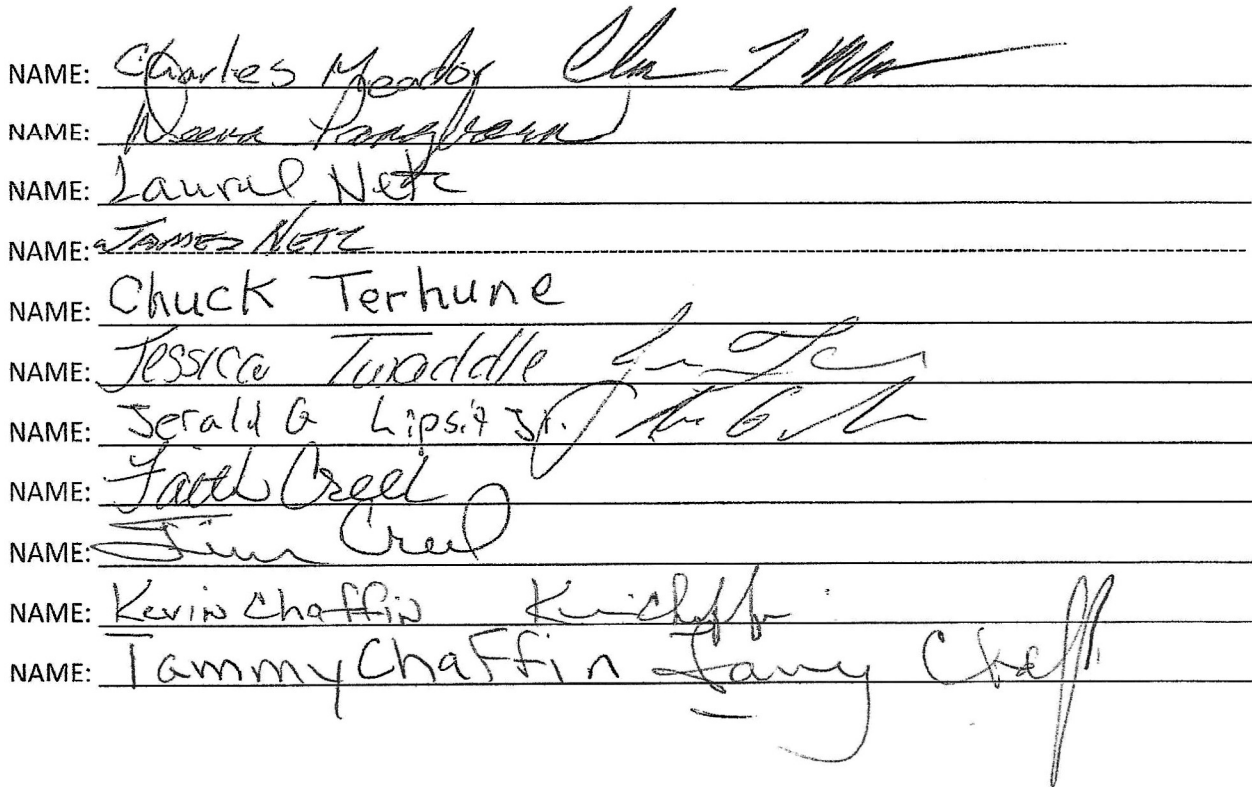 NAME: Charles Meador
NAME: Deena Pangburn
NAME: Laural Netz
NAME: JAMES NETZ
NAME: Chuck Terhune
NAME: Jessica Twaddle
NAME: Jerald G Lipsit Jr.
NAME: Faith Creel
NAME: Jim Creel
NAME: Kevin Chaffin Kevin Chaffin
NAME: Tammy Chaffin Tammy Chaff